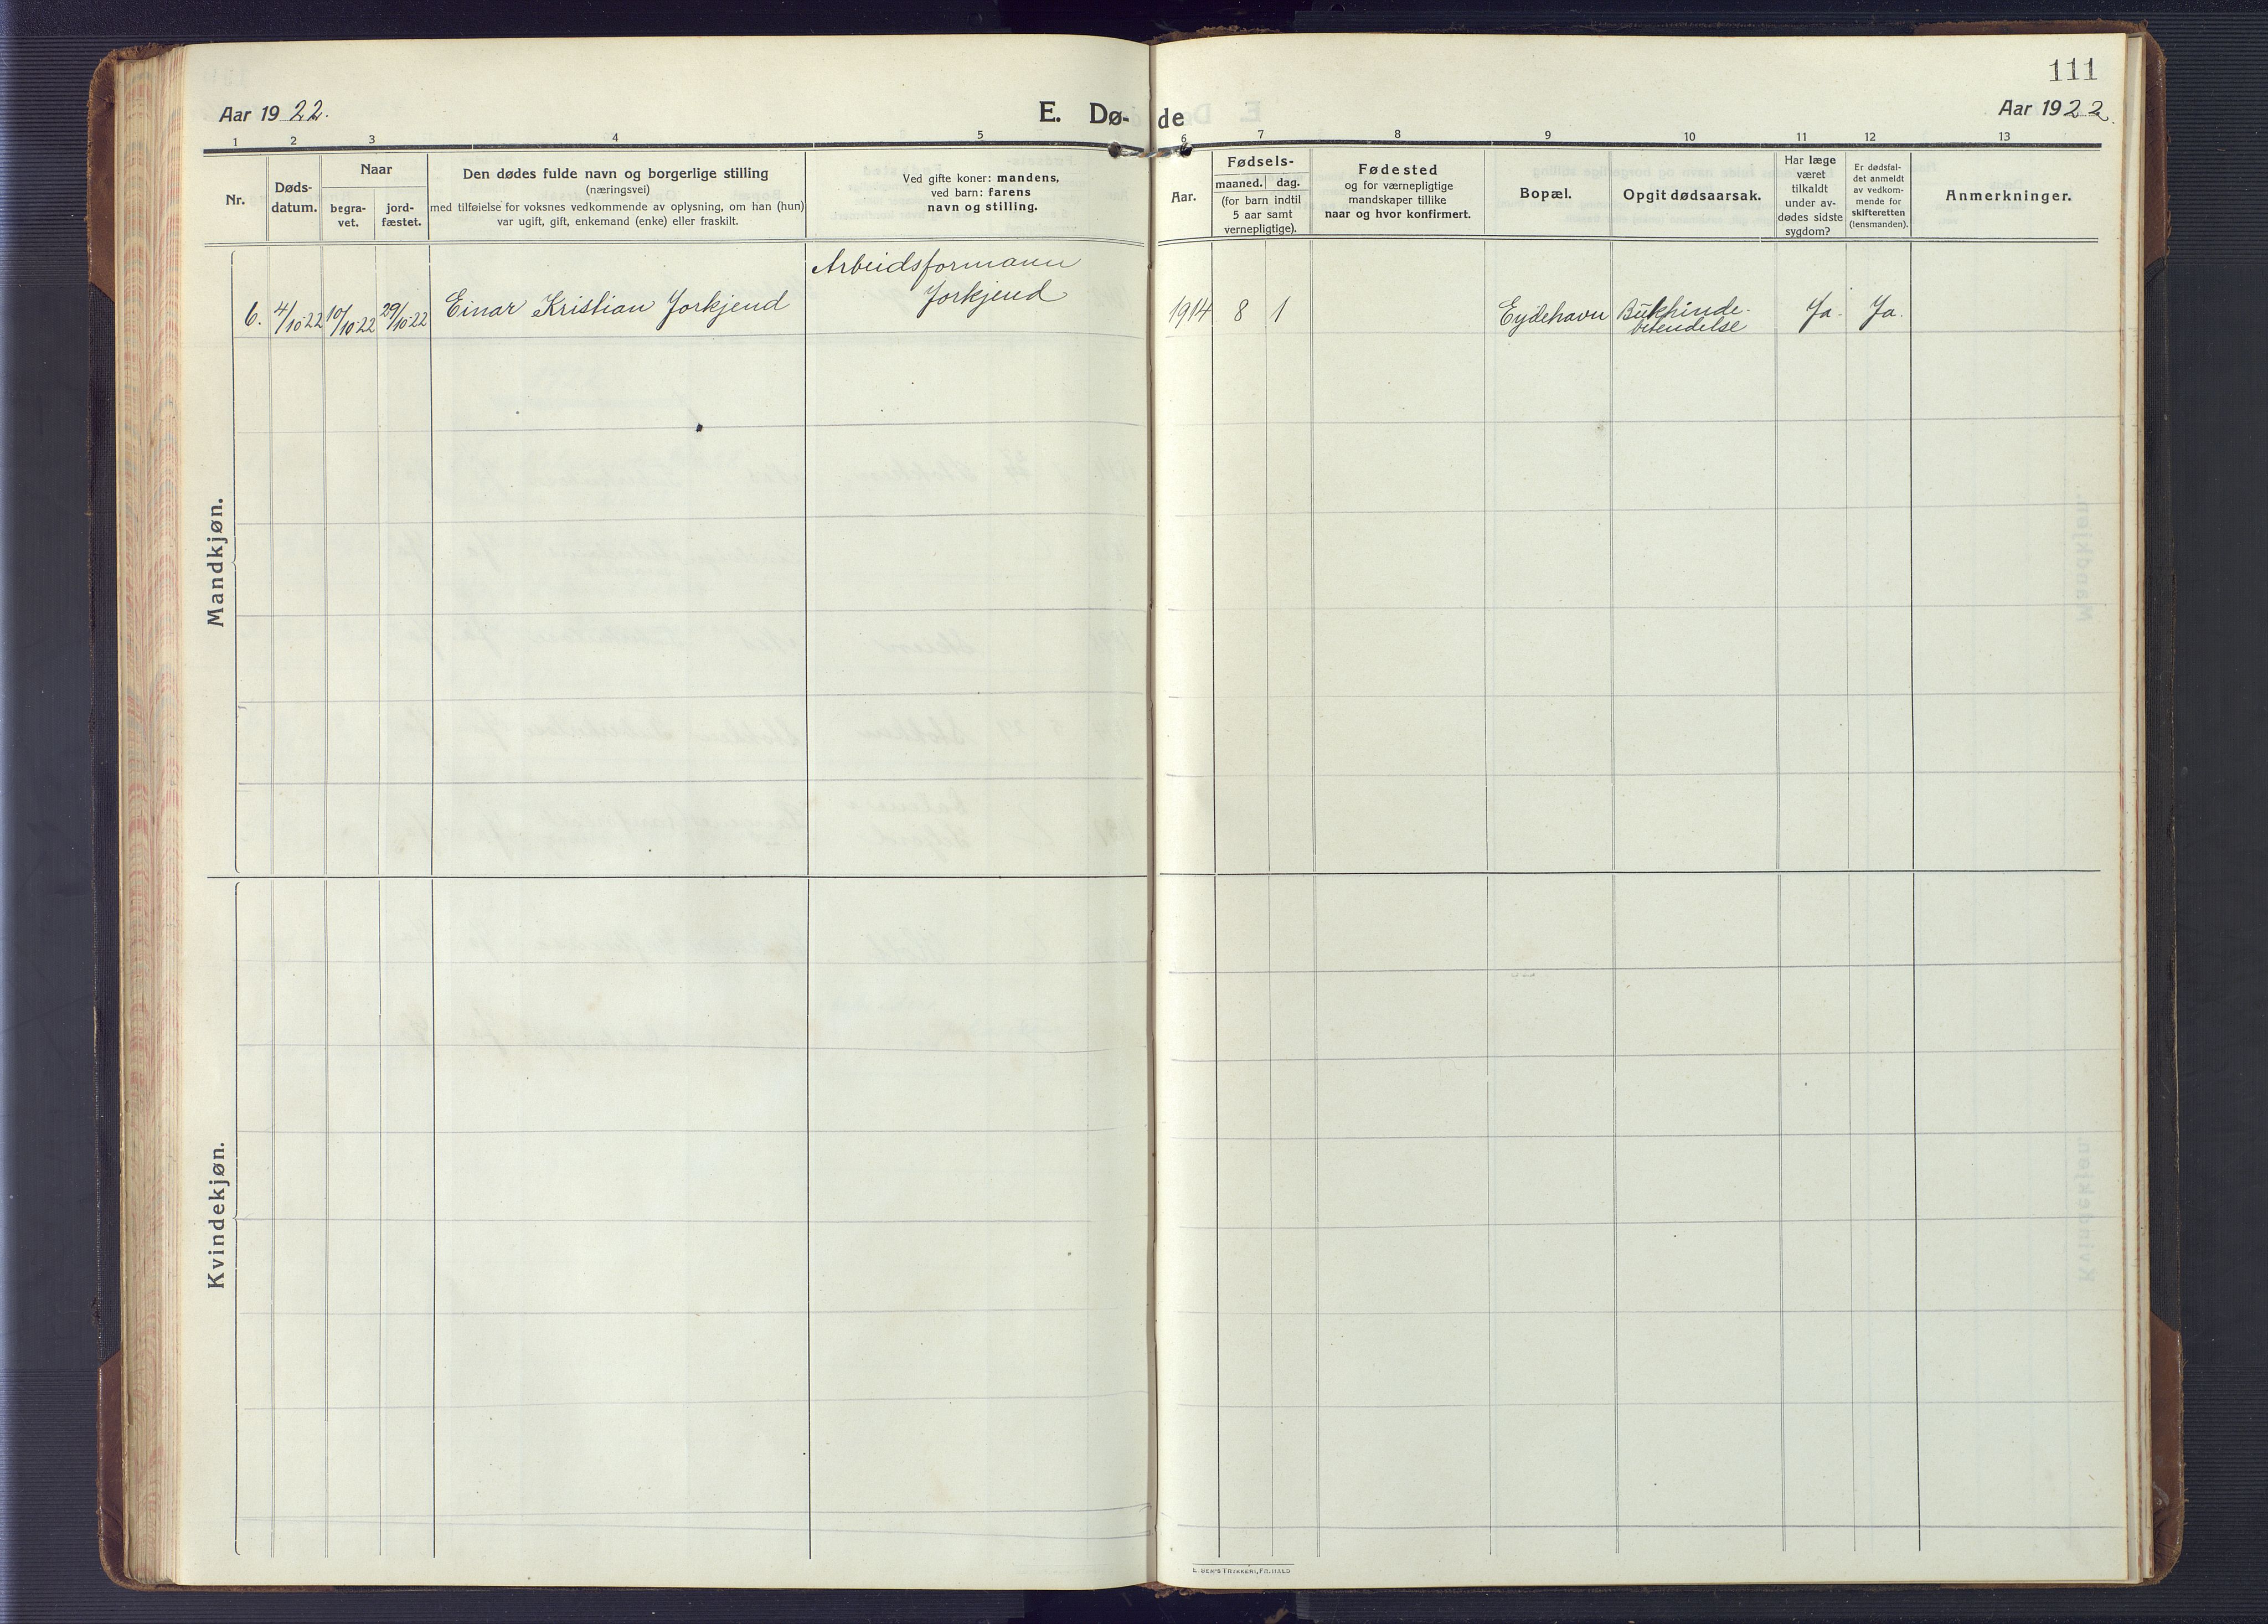 111
Aar 1922.
E. Dø-
de
Aar 1922.
1 2 3 4 5 6 7 8 9 10 11 12 13
Nr.
Døds-
datum.
Naar
begra-
vet.
jord-
fæstet.
Den dødes fulde navn og borgerlige stilling
(næringsvei)
med tilføielse for voksnes vedkommende av oplysning, om han (hun)
var ugift, gift, enkemand (enke) eller fraskilt.
Ved gifte koner: mandens,
ved barn: farens
navn og stilling.
Aar.
Fødsels-
maaned. dag.
(for barn indtil
5 aar samt
vernepligtige).
Fødested
og for værnepligtige
mandskaper tillike
naar og hvor konfirmert.
Bopæl.
Opgit dødsaarsak.
Har læge
været
tilkaldt
under av-
dødes sidste
sygdom?
Er dødsfal-
det anmeldt
av vedkom-
mende for
skifteretten
(lensmanden).
Anmerkninger.
Mandkjøn.
6. 4/10.22 10/10.22 29/10.22 Einar Kristian Jorkjend
Arbeidsformann
Jorkjend
1914 8 1 Eydehavn Bukhinde-
betendelse
Ja. Ja.
Kvindekjøn.